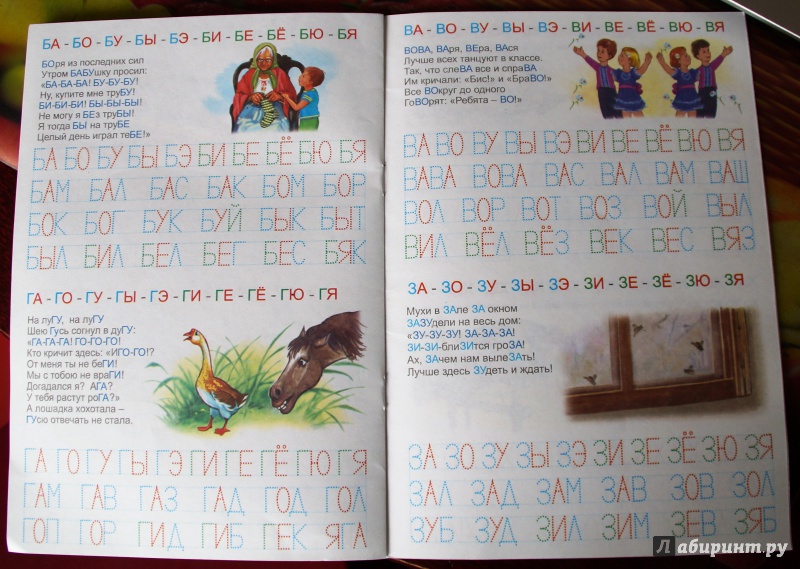 БА - БО - БУ - БЫ - БЭ - БИ - БЕ - БЁ - БЮ - БЯ
БОря из последних сил
Утром БАБУшку просил:
«БА-БА-БА! БУ-БУ-БУ!
Ну, купите мне труБУ!
БИ-БИ-БИ! БЫ-БЫ-БЫ!
Не могу я БЕз труБЫ!
Я тогда БЫ на труБЕ
Целый день играл теБЕ!»
БА БО БУ БЫ БЭ БИ БЕ БЁ БЮ БЯ
БАМ БАЛ БАС БАК БОМ БОР
БОК БОГ БУК БУЙ БЫК БЫТ
БЫЛ БИЛ БЕЛ БЕГ БЕС БЯК
ГА - ГО - ГУ - ГЫ - ГЭ - ГИ - ГЕ - ГЁ - ГЮ - ГЯ
На луГУ, на луГУ
Шею Гусь согнул в дуГУ:
«ГА-ГА-ГА! ГО-ГО-ГО!
Кто кричит здесь: «ИГО-ГО!?
От меня ты не беГИ!
Мы с тобою не враГИ!
Догадался я? АГА?
У тебя растут роГА?»
А лошадка хохотала –
ГУсю отвечать не стала.
ГА ГО ГУ ГЫ ГЭ ГИ ГЕ ГЁ ГЮ ГЯ
ГАМ ГАВ ГАЗ ГАД ГОД ГОЛ
ГОП ГОР ГИД ГИБ ГЕК ЯГА
ВА - ВО - ВУ - ВЫ - ВЭ - ВИ - ВЕ - ВЁ - ВЮ - ВЯ
ВОВА, ВАря, ВЕра, ВАся
Лучше всех танцуют в классе.
Так, что слеВА все и спраВА
Им кричали: «Бис!» и «БраВО!»
Все ВОкруг до одного
ГоВОрят: «Ребята – ВО!»
ВА ВО ВУ ВЫ ВЭ ВИ ВЕ ВЁ ВЮ ВЯ
ВАВА ВОВА ВАС ВАЛ ВАМ ВАШ
ВОЛ ВОР ВОТ ВОЗ ВОЙ ВЫЛ
ВИЛ ВЁЛ ВЁЗ ВЕК ВЕС ВЯЗ
ЗА - ЗО - ЗУ - ЗЫ - ЗЭ - ЗИ - ЗЕ - ЗЁ - ЗЮ - ЗЯ
Мухи в ЗАле ЗА окном
ЗАЗУдели на весь дом:
«ЗУ-ЗУ-ЗУ! ЗА-ЗА-ЗА!
ЗИ-ЗИ-блиЗИтся гроЗА!
Ах, ЗАчем нам вылеЗАть!
Лучше здесь ЗУдеть и ждать!
ЗА ЗО ЗУ ЗЫ ЗЭ ЗИ ЗЕ ЗЁ ЗЮ ЗЯ
ЗАЛ ЗАД ЗАМ ЗАВ ЗОВ ЗОЛ
ЗУБ ЗУД ЗИЛ ЗИМ ЗЕВ ЗЯБ
Лабиринт.ру